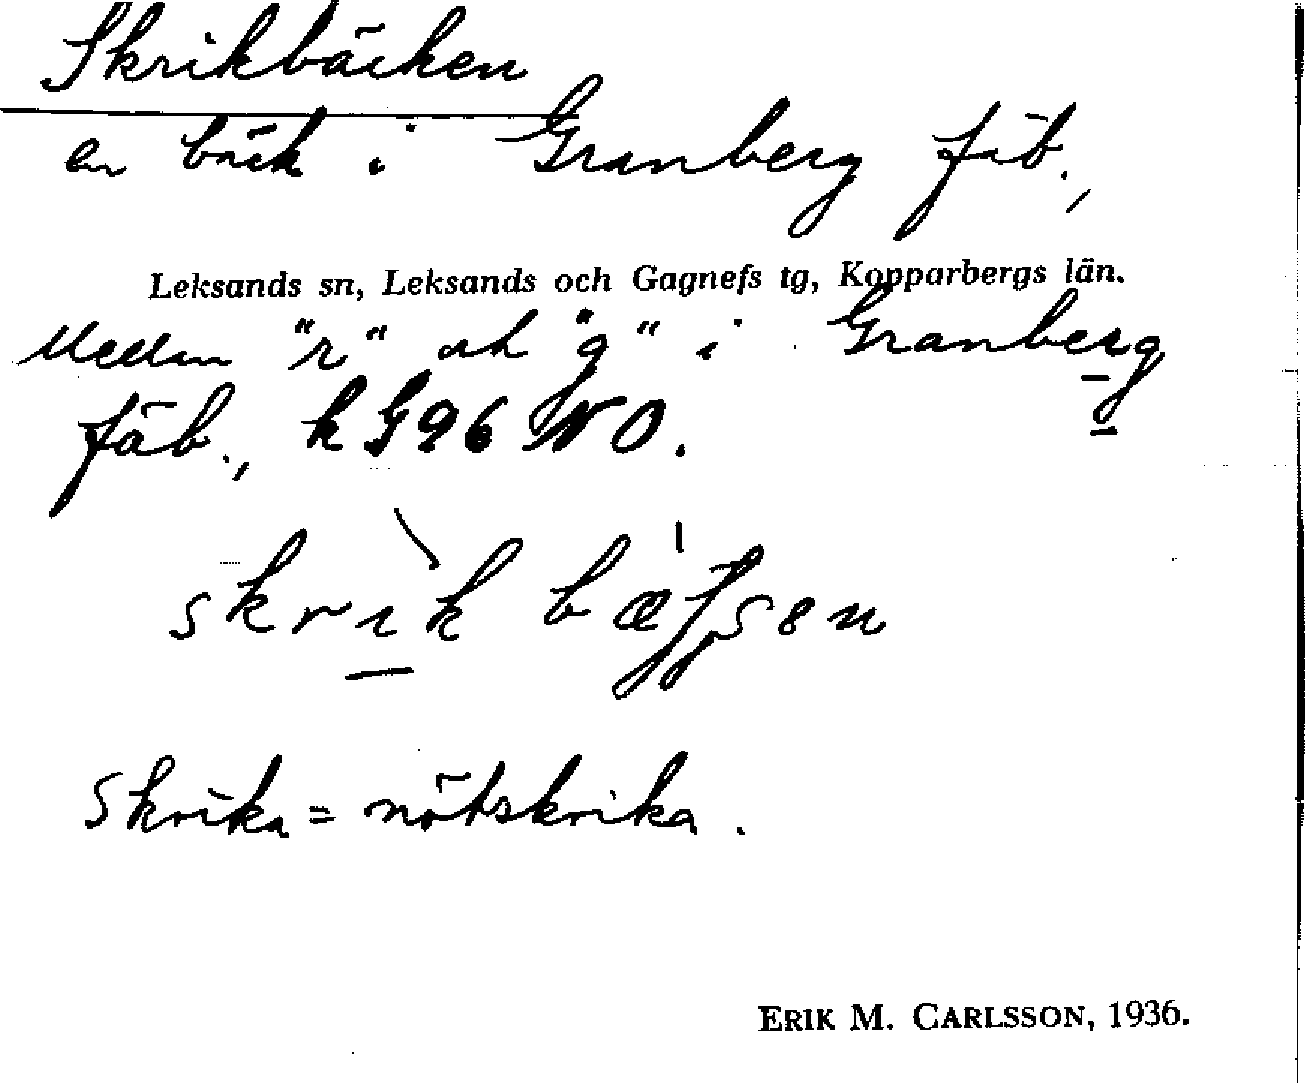 Skrikbäcken
en bäck i Granberg fäb.,
Leksands sn, Leksands och Gagnefs tg, Kopparbergs län.
Mellan "r" och "g" i Granberg
fäb., k G96 NO.
skrik
Skrika = nötskrika.
ERIK M. CARLSSON, 1936.